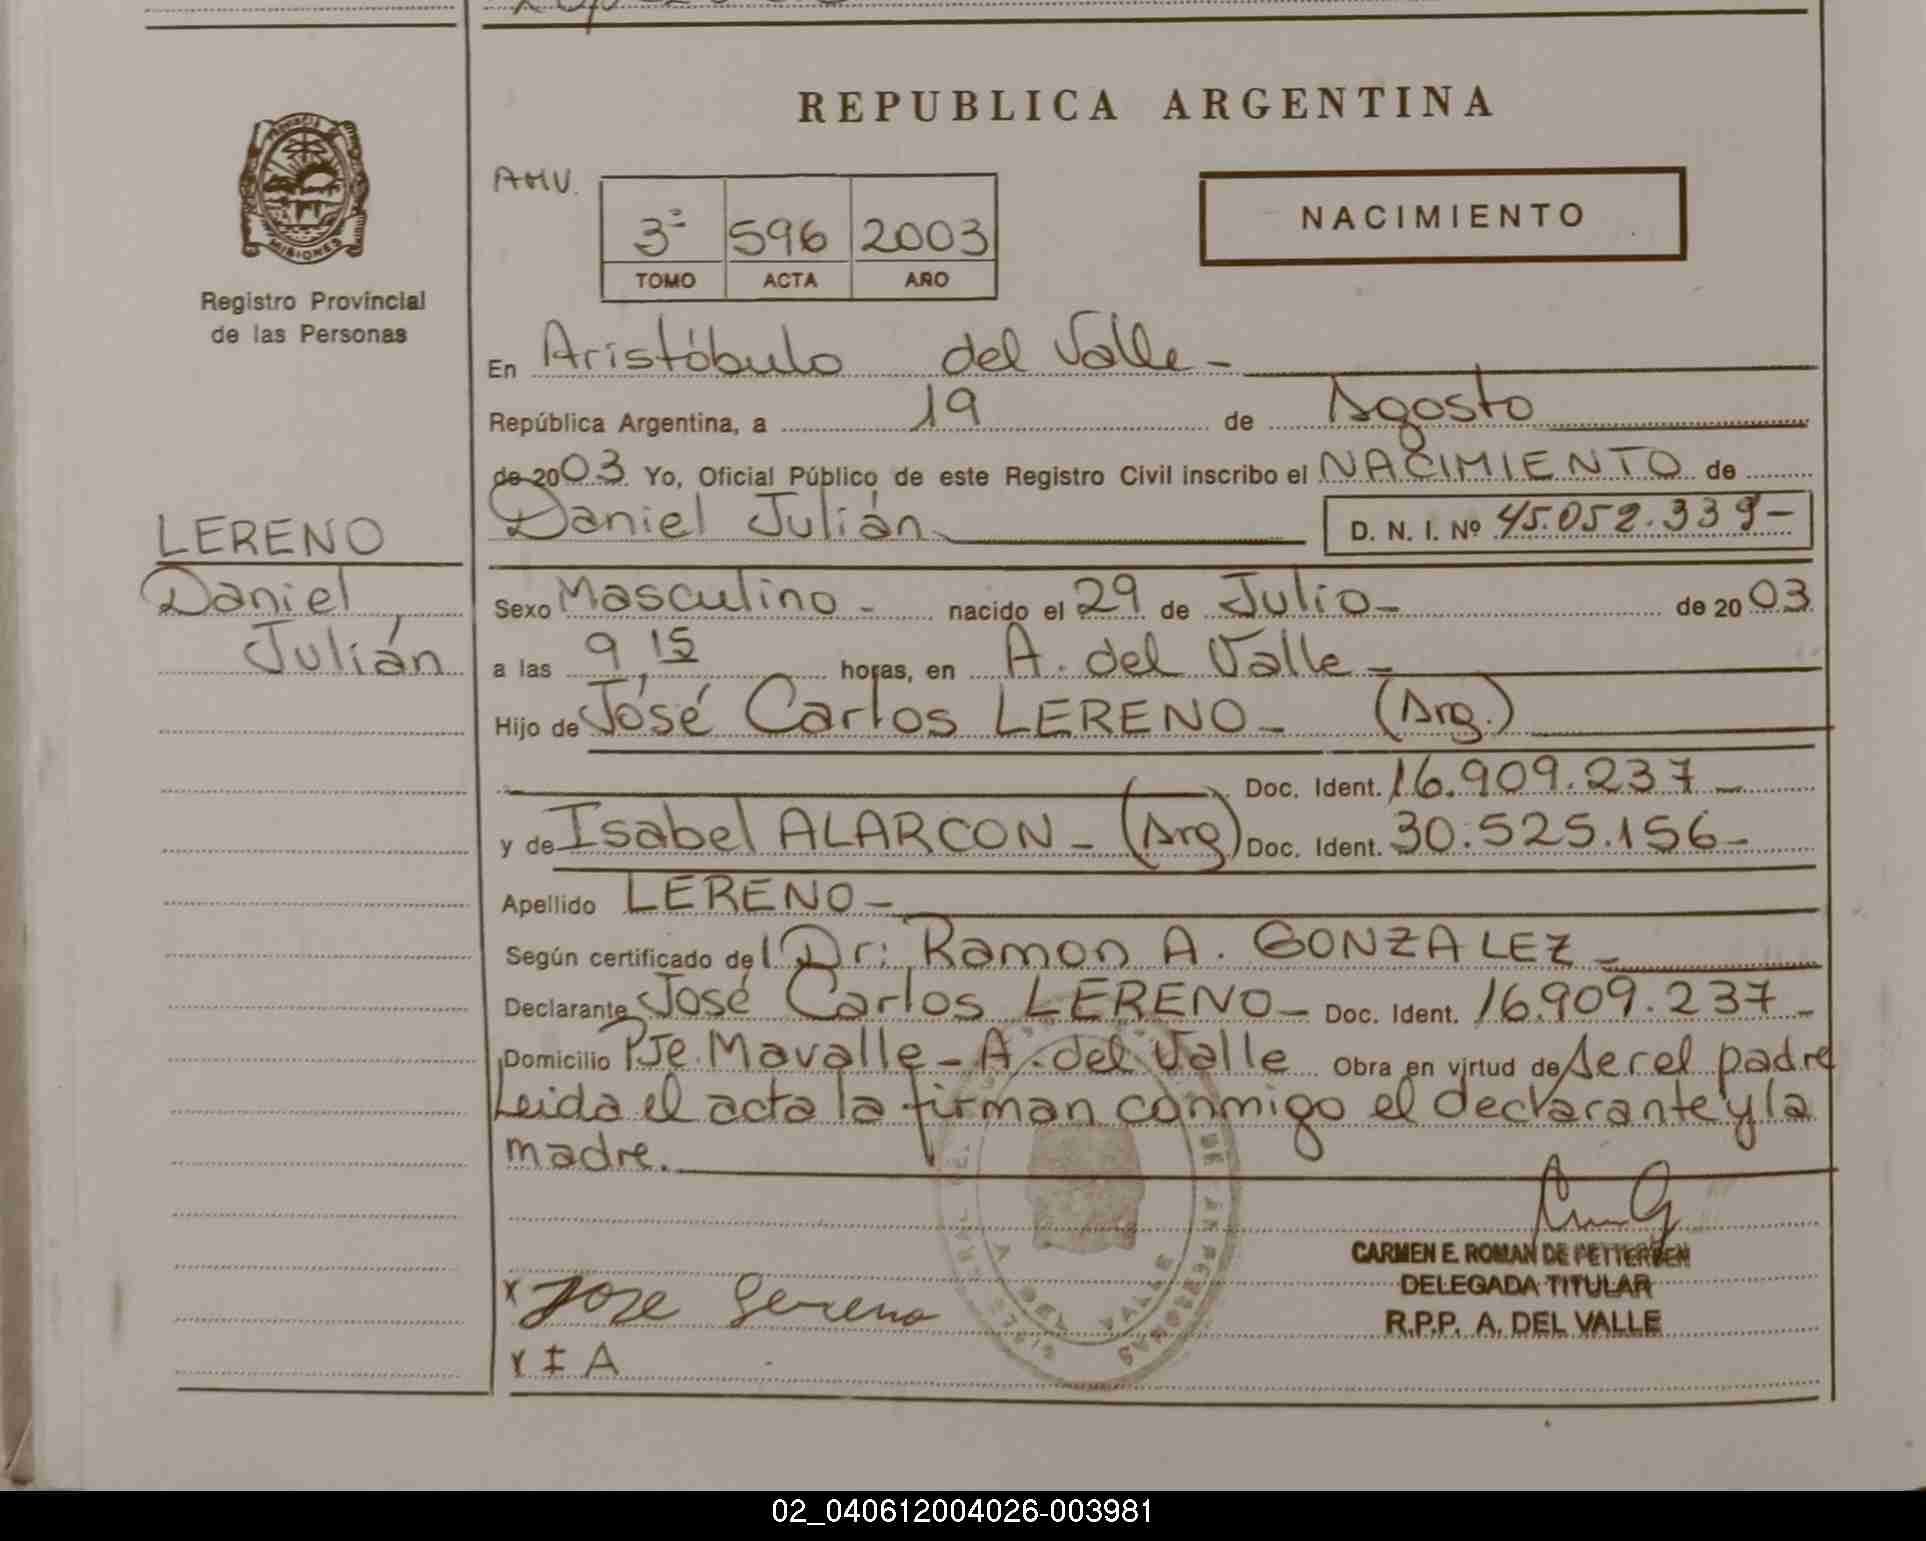 REPUBLICA ARGENTINA
PROVINCIA DE
MISIONES
Registro Provincial
de las Personas
AMV.
3ª 596 2003
TOMO ACTA AÑO
NACIMIENTO
En Aristóbulo del Valle -
República Argentina, a 19 de Agosto
de 2003 Yo, Oficial Público de este Registro Civil inscribo el NACIMIENTO de
Daniel Julián D. N. I. Nº 45.052.339-
LERENO
Daniel
Julián
Sexo Masculino - nacido el 29 de Julio - de 2003
a las 9,15 horas, en A. del Valle -
Hijo de José Carlos LERENO - (Arg.)
Doc. Ident. 16.909.237 -
y de Isabel ALARCON - (Arg) Doc. Ident. 30.525.156 -
Apellido LERENO -
Según certificado del Dr: Ramon A. GONZALEZ -
Declarante José Carlos LERENO - Doc. Ident. 16.909.237 -
Domicilio Pje. Mavalle - A. del Valle Obra en virtud de ser el padre
Leida el acta la firman conmigo el declarante y la
madre.
CARMEN E. ROMAN DE PETTERSEN
DELEGADA TITULAR
R.P.P. A. DEL VALLE
x Jose Lereno
x I A
02_040612004026-003981